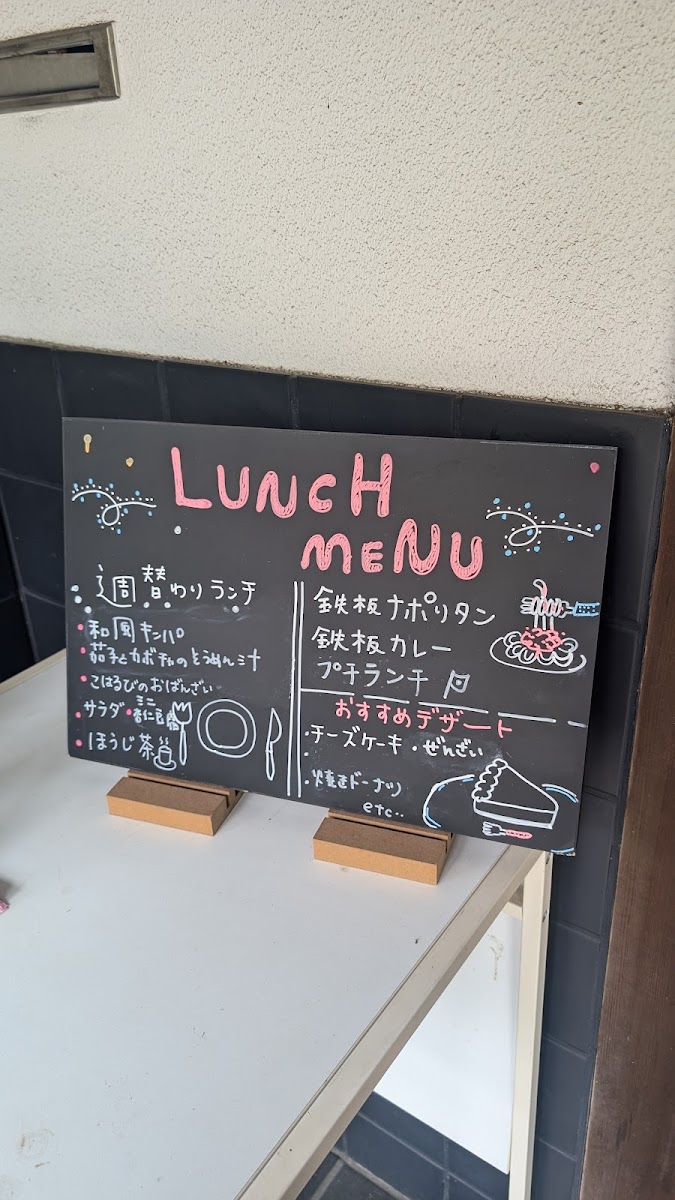 LUNCH
MENU
週替わりランチ
・和風キンパ
・茄子とカボチャのそうめん汁
・こはるびのおばんざい
・サラダ・ミニ杏仁豆腐
・ほうじ茶
鉄板ナポリタン
鉄板カレー
プチランチ
おすすめデザート
・チーズケーキ・ぜんざい
・焼きドーナツ
etc..